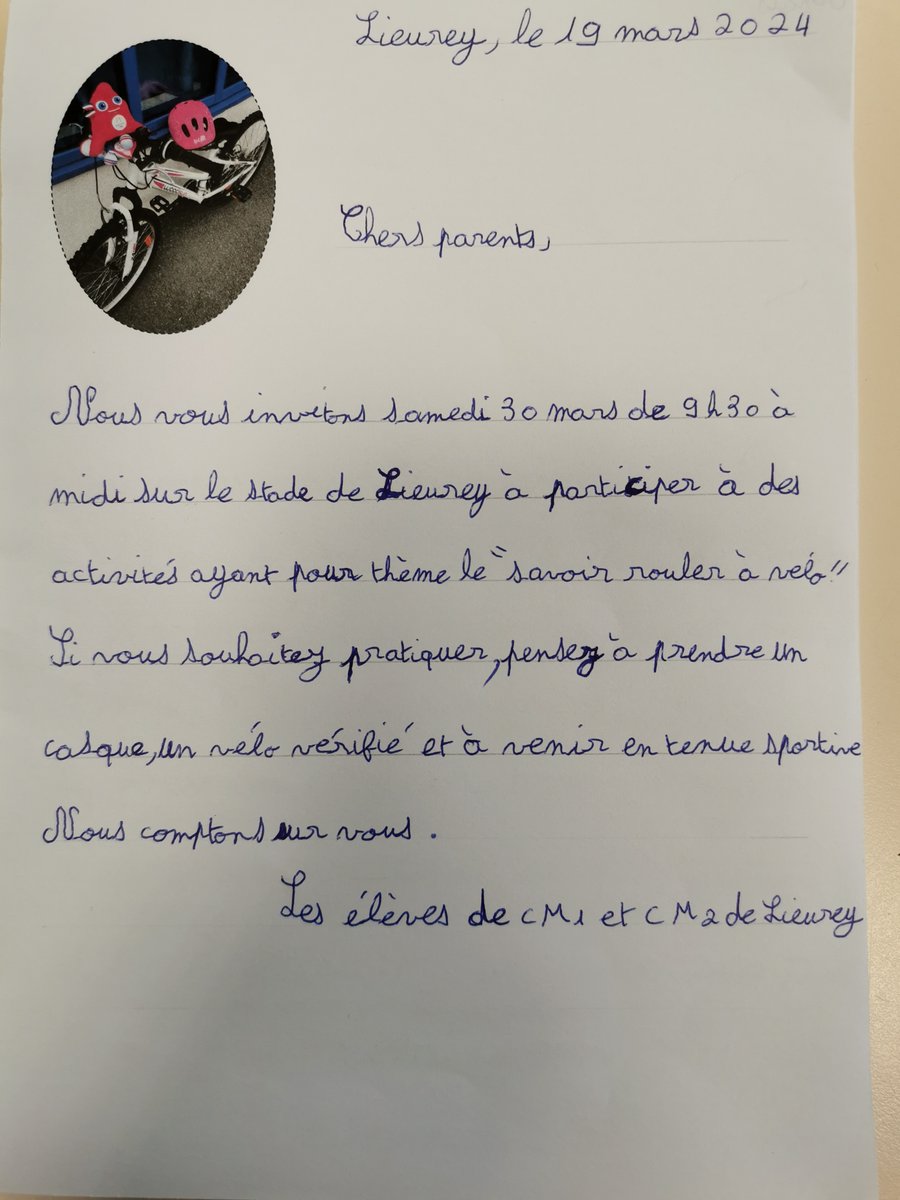 Lieurey, le 19 mars 2024
Chers parents,
Nous vous invitons samedi 30 mars de 9h30 à
midi sur le stade de Lieurey à participer à des
activités ayant pour thème le "savoir rouler à vélo"
Si vous souhaitez pratiquer, pensez à prendre un
casque, un vélo vérifié et à venir en tenue sportive
Nous comptons sur vous.
Les élèves de CM1 et CM2 de Lieurey